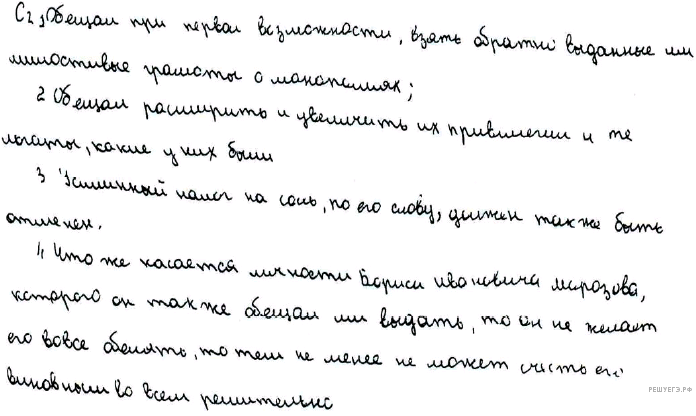 С2 1 Обещал при первой возможности, взять обратно выданные им
милостивые грамоты о монополиях;
2 Обещал расширить и увеличить их привилегии и те
льготы, какие у них были
3 Усиленный налог на соль, по его слову, должен также быть
отменен.
4 Что же касается личности Бориса Ивановича Морозова,
которого он также обещал им выдать, то он не желает
его вовсе обелять, но тем не менее не может счесть его
виновным во всем решительно
РЕШУЕГЭ.РФ